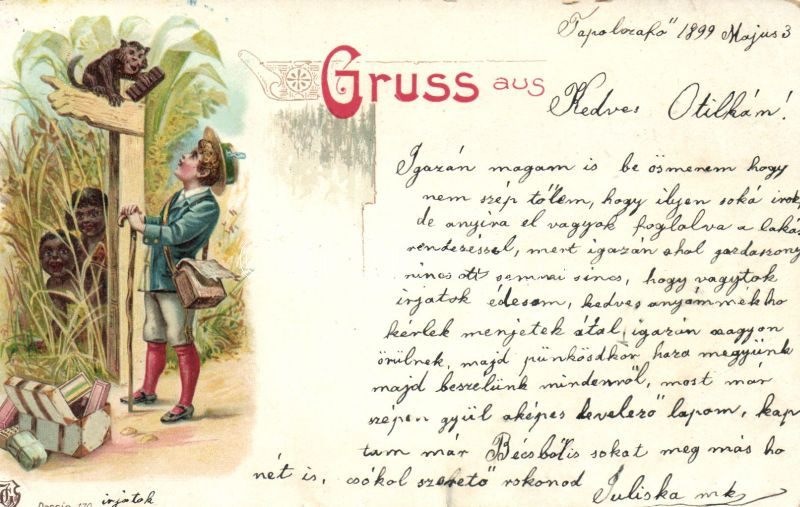 Tapolczafő 1899 Május 3
Gruss aus
Kedves Otilkám!
Igazán magam is be ösmerem hogy
nem szép tőlem, hogy ilyen soká irok,
de anyira el vagyok foglalva a lakás
rendezéssel, mert igazán ahol gazdaszony
nincs ott semmi sincs, hogy vagytok
irjatok édesem, kedves anyámmekho
kérlek menjetek átal igazán nagyon
örülnek, majd pünkösdkor haza megyünk
majd beszelünk mindenről, most már
szépen gyül aképes levelező lapom, kap
tam már Bécsből is sokat meg más ho
nét is, csókol szerető rokonod
Juliska mk
irjatok